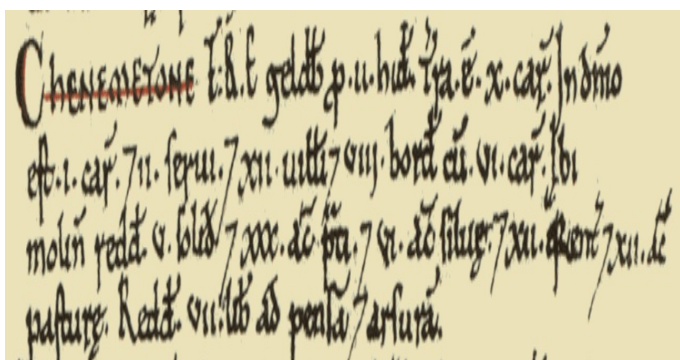 CHENEMETONE T.R.E. geldb̄ p. u. hid. Tr̄a. ē. x. car̄. In dn̄io
est. i. car̄. ⁊ ii. serui. ⁊ xii. uilli ⁊ viii. bord cū. vi. car̄. Ibi
molin̄ redd. v. solid ⁊ xxx. ac̄ p̄ti. ⁊ vi. ac̄ siluę. ⁊ xii. ⁊ xii. ac̄
pasturę. Redd. vii. lib ad pensā ⁊ arsurā.